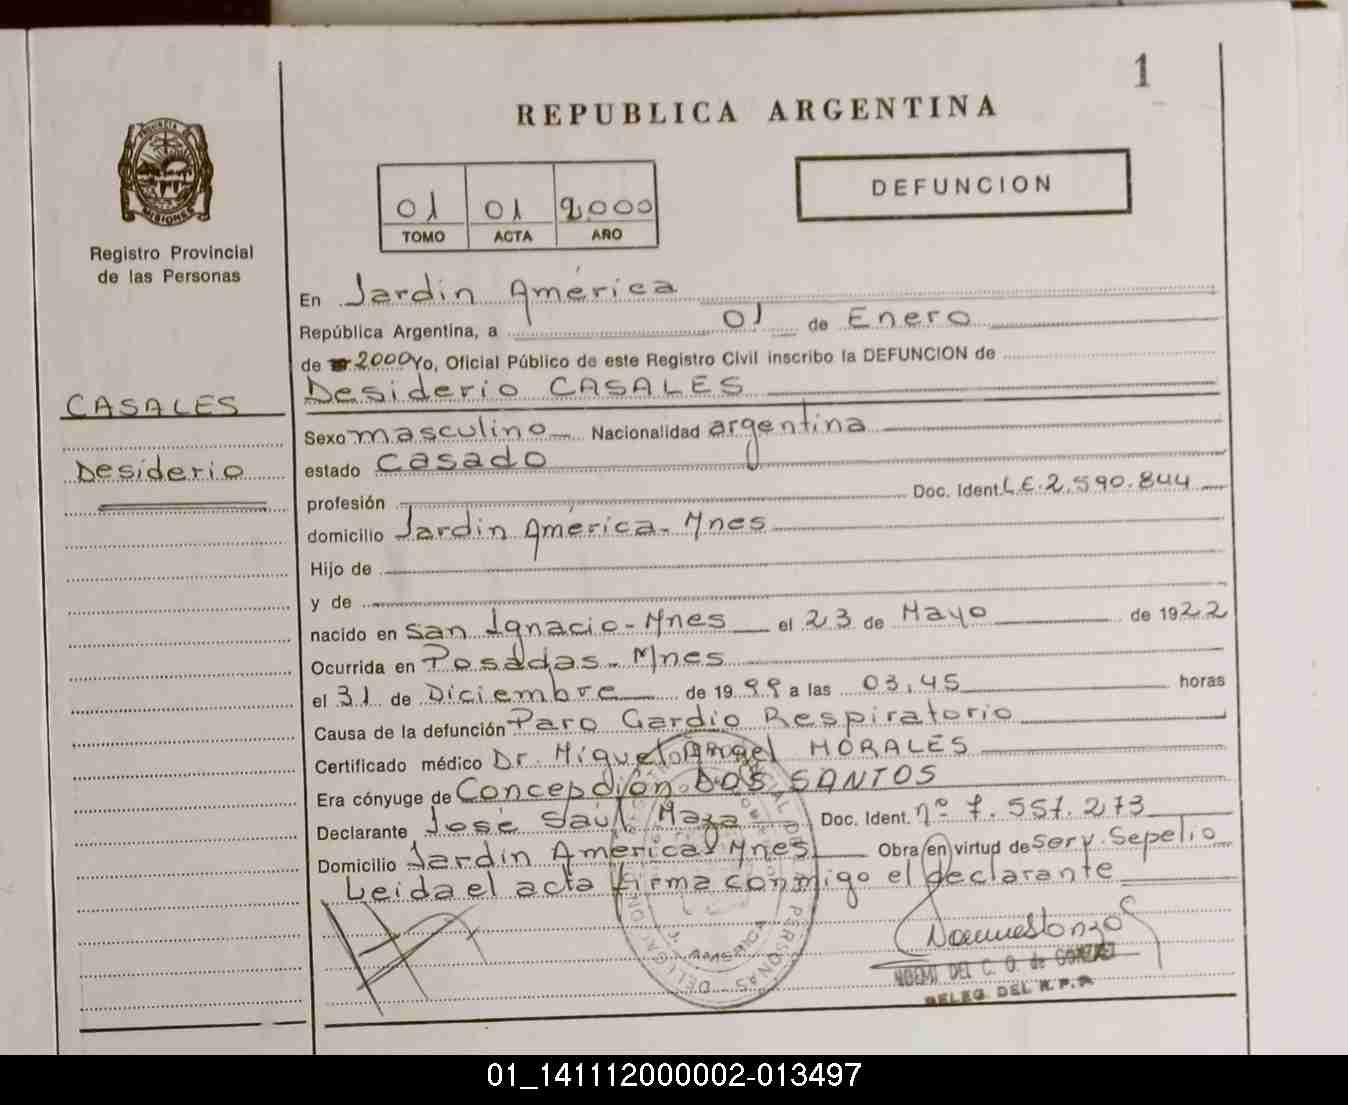 1
REPUBLICA ARGENTINA
PROVINCIA DE
MISIONES
Registro Provincial
de las Personas
01 01 2.000
TOMO ACTA AÑO
DEFUNCION
En Jardín América
República Argentina, a 01 de Enero
de 2000 Yo, Oficial Público de este Registro Civil inscribo la DEFUNCION de
Desiderio CASALES
CASALES
Desiderio
Sexo masculino Nacionalidad argentina
estado casado
profesión Doc. Ident. L.E. 2.590.844
domicilio Jardin América - Mnes
Hijo de
y de
nacido en San Ignacio - Mnes el 23 de Mayo de 1922
Ocurrida en Posadas - Mnes
el 31 de Diciembre de 1999 a las 03,45 horas
Causa de la defunción Paro Cardio Respiratorio
Certificado médico Dr. Miguel Angel MORALES
Era cónyuge de Concepción DOS SANTOS
Declarante José Saúl Maza Doc. Ident. nº 7.557.273
Domicilio Jardin América Mnes Obra en virtud de Serv. Sepelio
Leida el acta firma conmigo el declarante
J. AMERICA
NOEMI DEL C. O. de GONZALEZ
DELEG. DEL R.P.P.
01_141112000002-013497